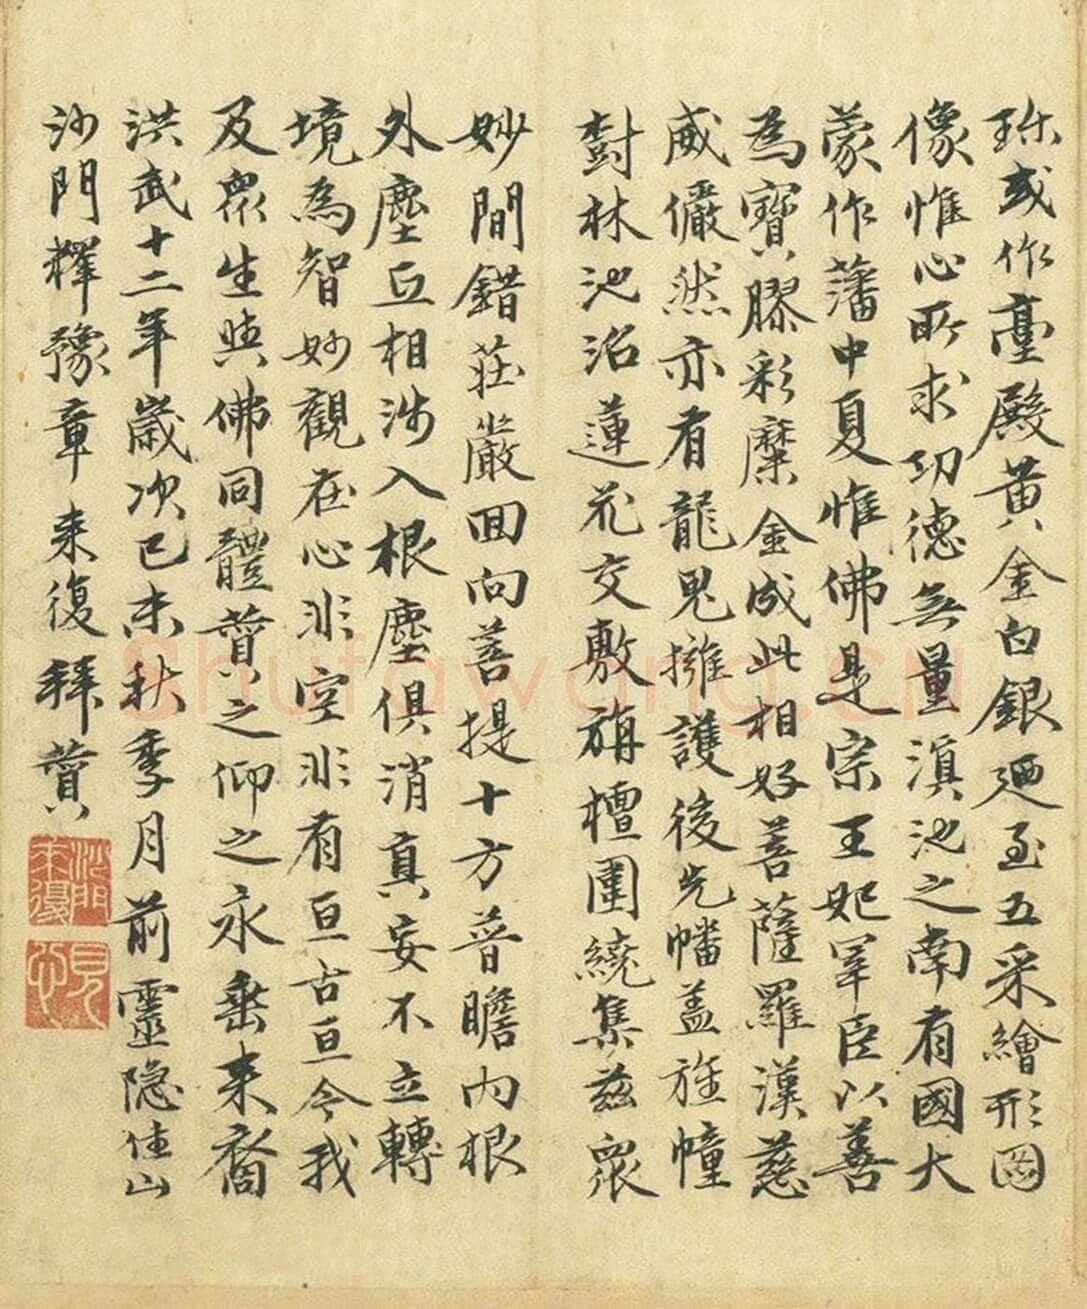 珎或作臺殿黃金白銀廼至五采繪形圖
像惟心所求功德無量滇池之南有國大
蒙作藩中夏惟佛是宗王妃宰臣以善
為寶膠彩糜金成此相好菩薩羅漢慈
威儼然亦有龍鬼擁護後先幡盖旌幢
對林池沼蓮花交敷旃檀圍繞集茲眾
妙間錯莊嚴回向菩提十方普瞻內根
外塵互相涉入根塵俱消真妄不立轉
境為智妙觀在心非空非有亘古亘今我
及眾生與佛同體贊之仰之永垂來裔
洪武十二年歲次己未秋季月前靈隐住山
沙門釋豫章来復拜贊
沙門来復
見心
Shufawang.cn